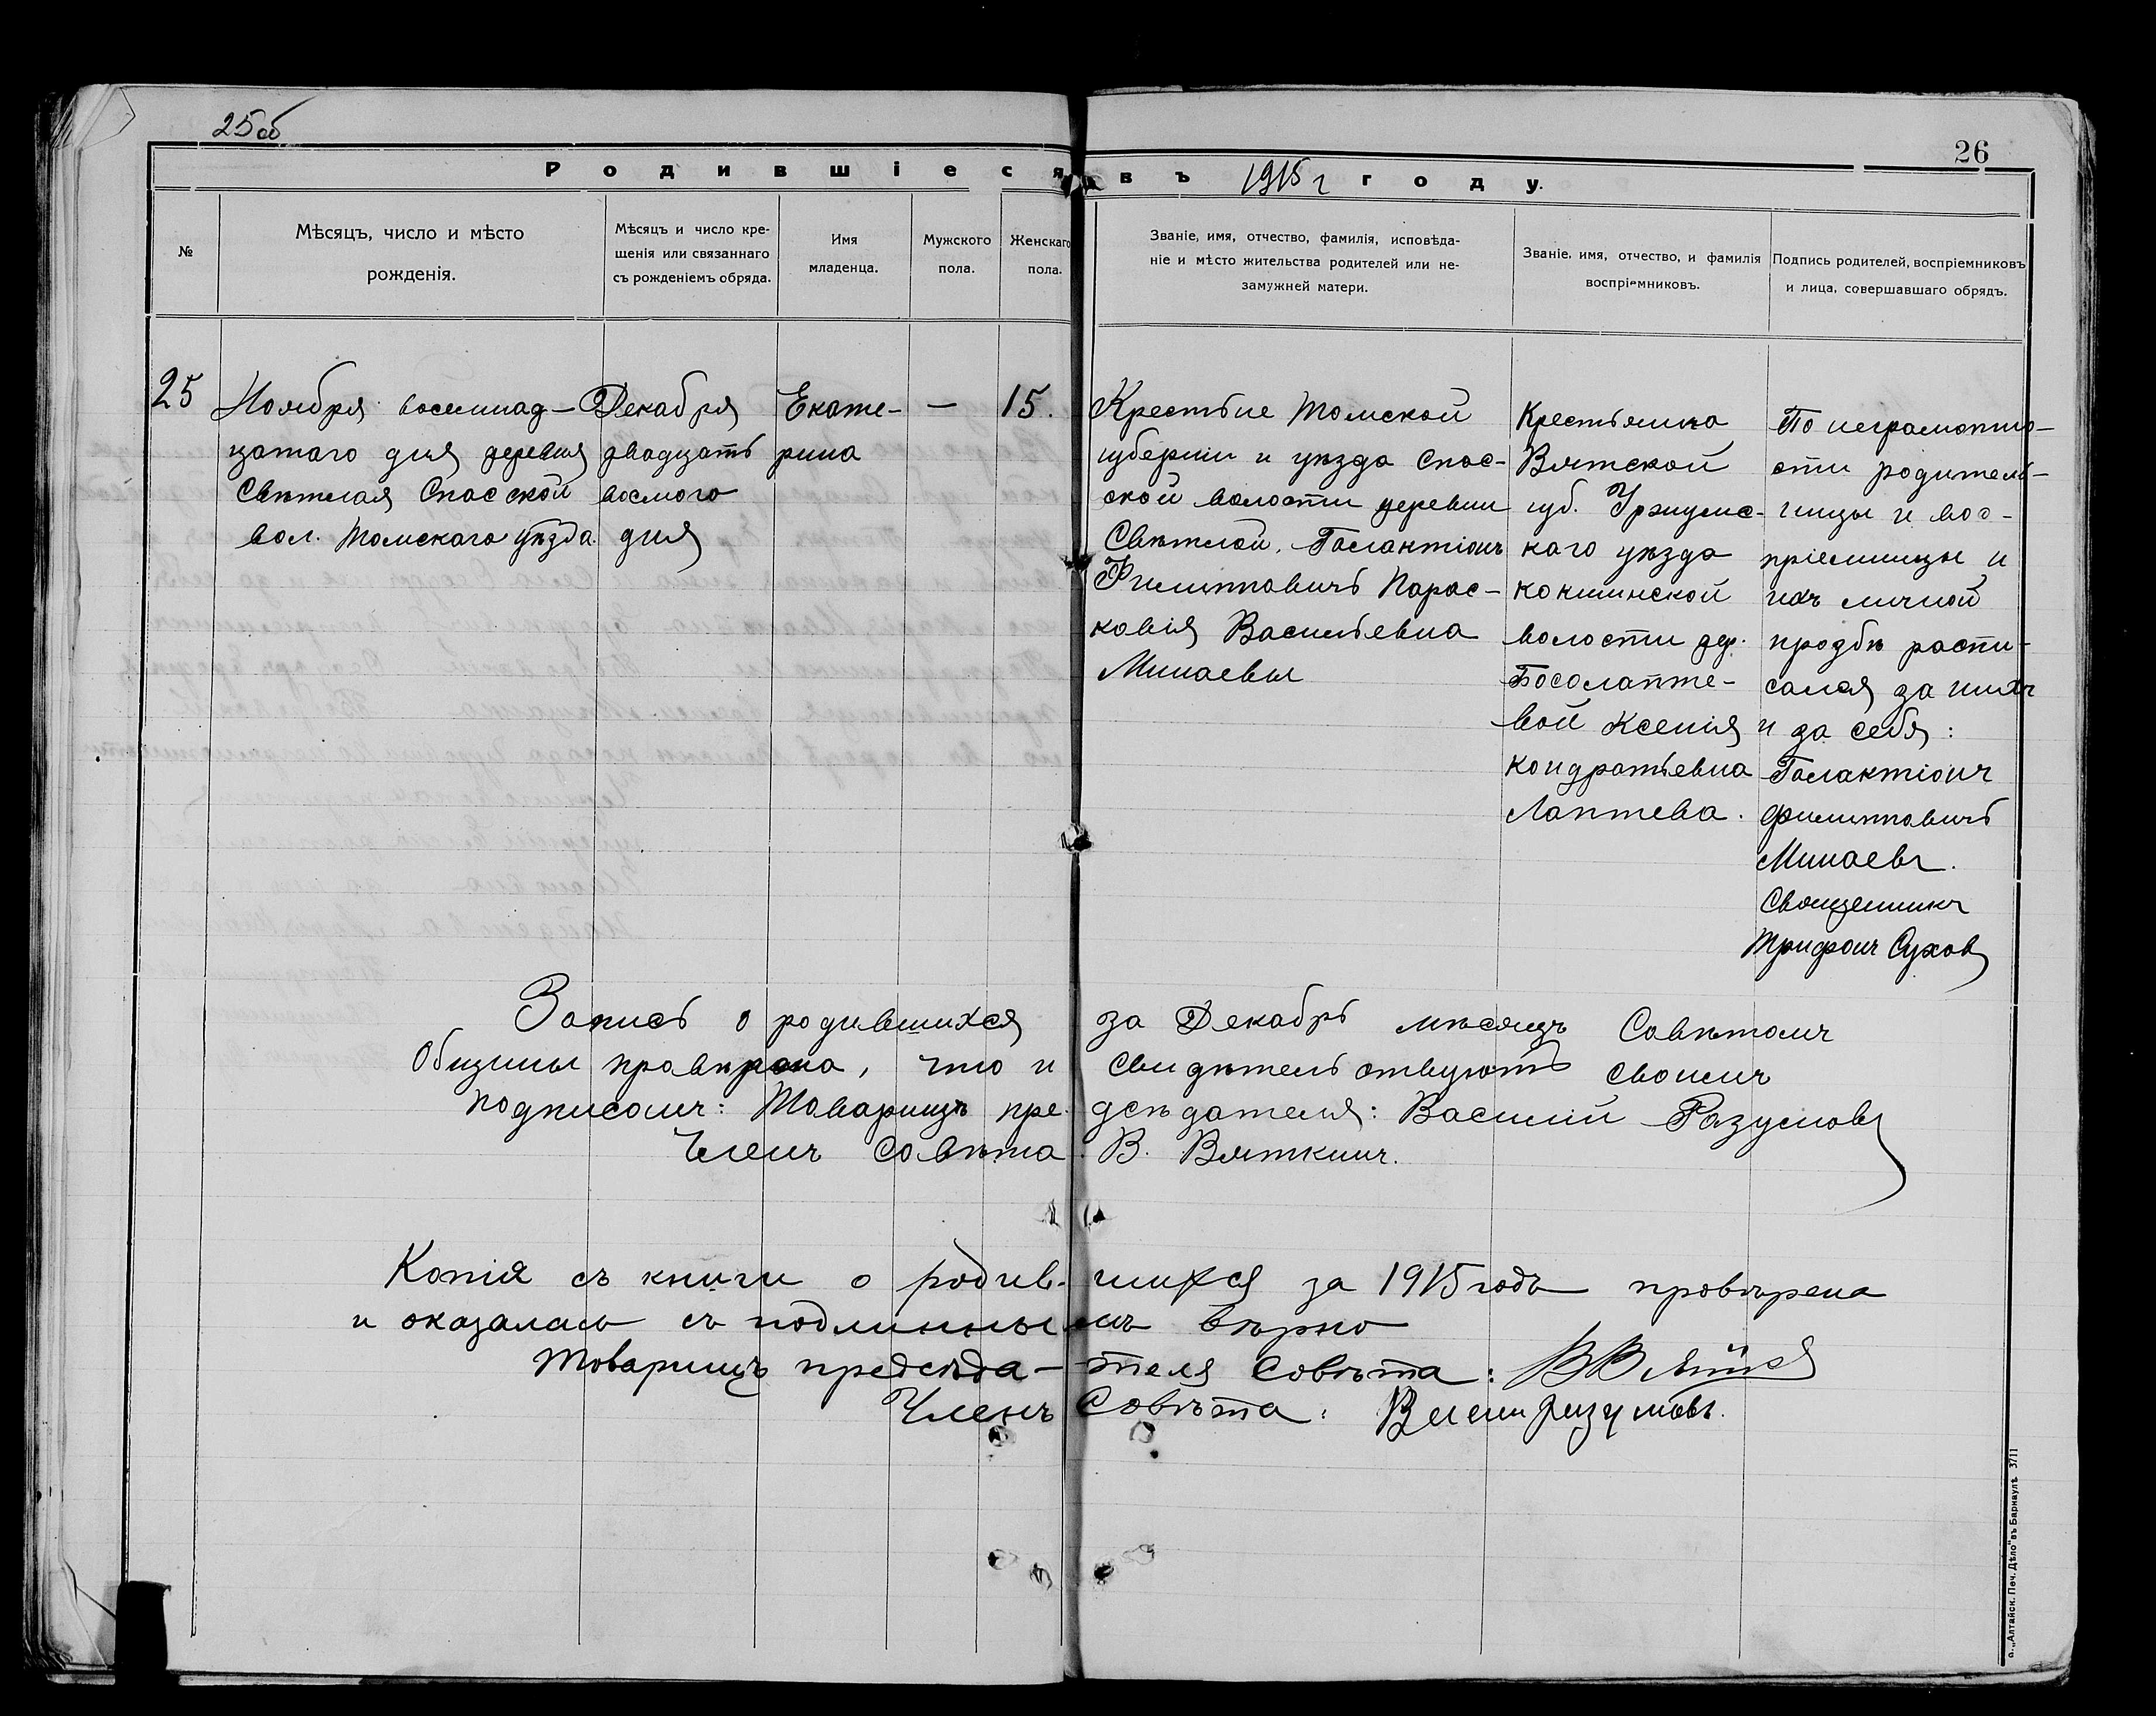 25об
26
Родившіеся въ 1915 г году.
№
Мѣсяцъ, число и мѣсто
рожденія.
Мѣсяцъ и число кре-
щенія или связаннаго
съ рожденіемъ обряда.
Имя
младенца.
Мужского
пола.
Женскаго
пола.
Званіе, имя, отчество, фамилія, исповѣда-
ніе и мѣсто жительства родителей или не-
замужней матери.
Званіе, имя, отчество, и фамилія
воспріемниковъ.
Подпись родителей, воспріемниковъ
и лица, совершавшаго обрядъ.
25
Ноября восемнад-
цатаго дня деревня
Свѣтлая Спасской
вол. Томскаго уѣзда.
Декабря
двадцать
восмого
дня
Екате-
рина
—
15.
Крестьне Томской
губерніи и уѣзда Спас-
ской волости деревни
Свѣтлой, Галактіонъ
Филипповичъ Парас-
ковія Васильевна
Минаевы
Крестьянка
Вятской
губ. Уржумс-
каго уѣзда
кокшинской
волости дер.
Босолапте-
вой Ксенія
кондратьевна
Лаптева.
По неграмотно-
сти родитель-
ницы и вос-
пріемницы и
ихъ личной
прозбѣ распи-
салея за нихъ
и за себя:
Галактіонъ
Филипповичъ
Минаевъ.
Священникъ
Трифонъ Сухов
Запись о родившихся за Декабрь мѣсяцъ Совѣтомъ
Общины провѣрена, что и свидѣтельствуютъ своимъ
подписомъ: Товарищъ предсѣдателя: Василій Разумовъ
Членъ совѣта В. Вяткинъ.
Копія съ книги о родившихся за 1915 годъ провѣрена
и оказалась съ подлиннымъ вѣрно
Товарищъ предсѣда-теля Совѣта:
Членъ Совѣта: Разумовъ.
п. „Алтайск. Печ. Дѣло" въ Барнаулѣ 3711